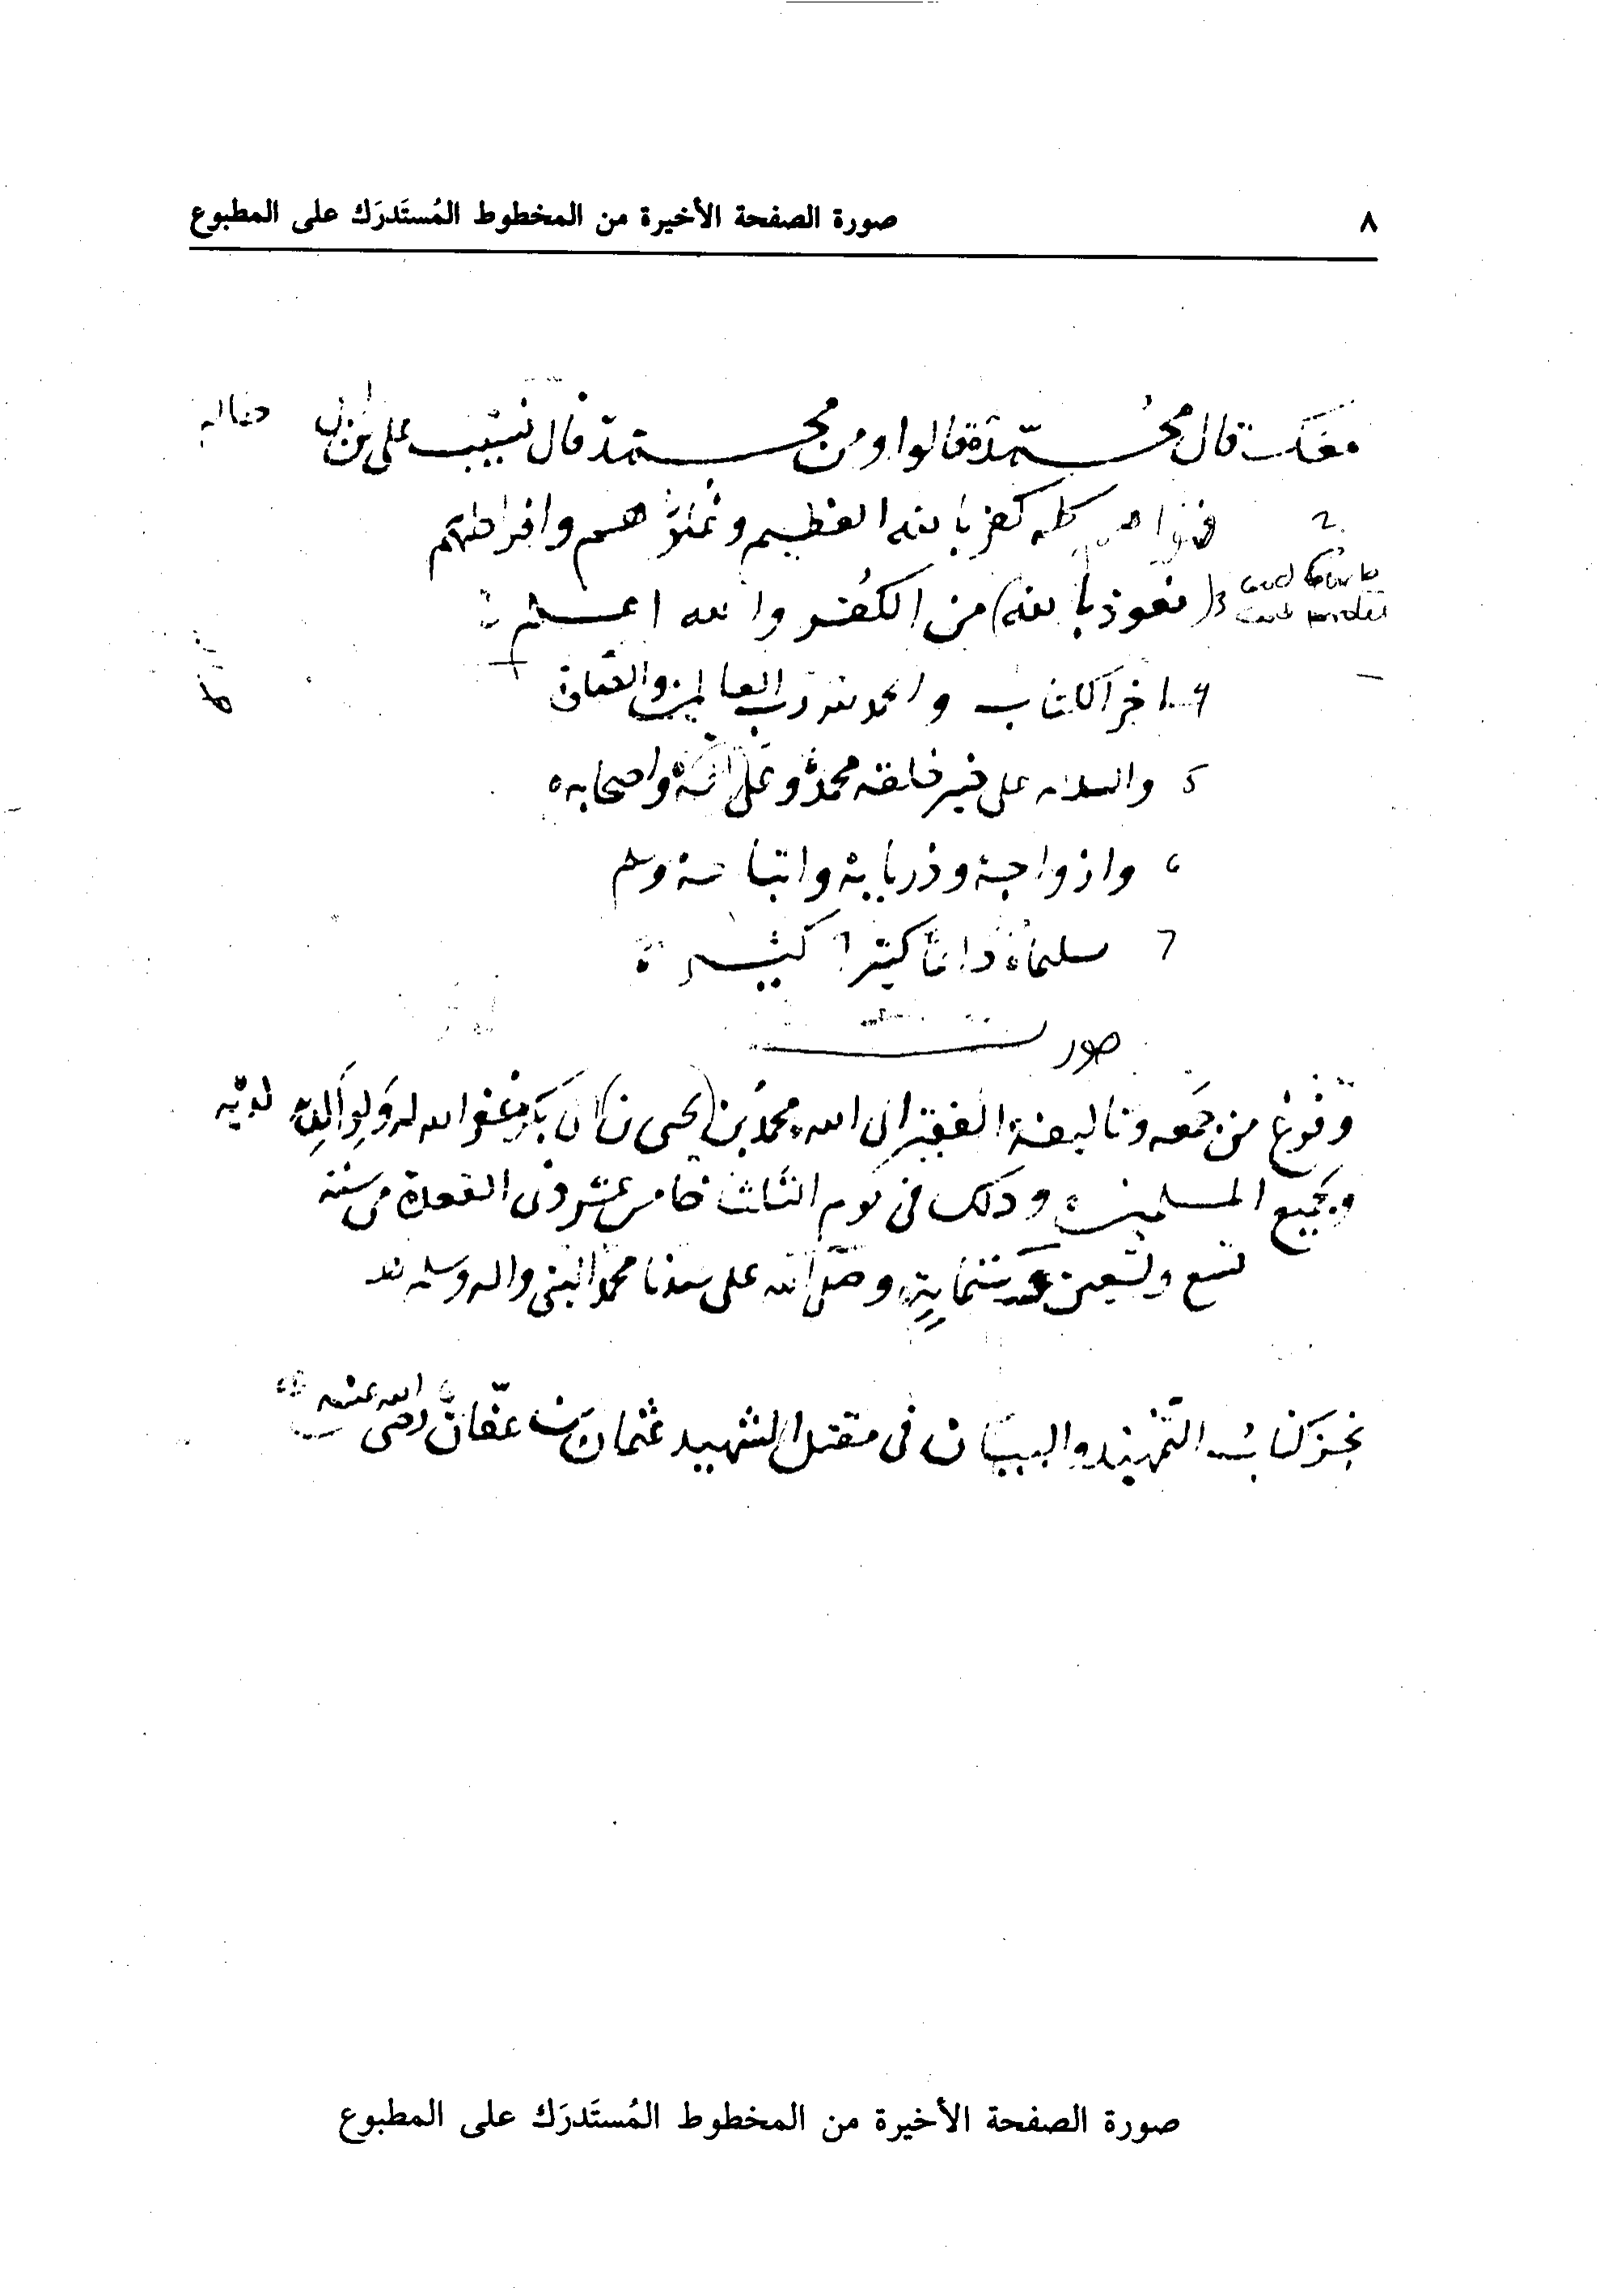 ٨ صورة الصفحة الأخيرة من المخطوط المُستَدرَك على المطبوع
معك قال محمد قالوا ومن محمد قال نسيب على بن
2 كله كفر بالله العظيم و هم وافراطهم
3 (نعوذ بالله) من الكفر والله اعلم
4 اخر الكتاب والحمد لله رب العالمين
5 والسلام على خير خلقه محمد وعلى اله واصحابه
6 وازواجه وذرياته واتباعه وسلم
7 دائما كثيرا كثيرا
صورت
وفرغ من جمعه وتاليفه الفقير الى الله محمد بن (يحيى بن) ابى بكر غفر الله له ولوالديه
ولجميع المسلمين وذلك فى يوم الثلاث خامس عشر ذى القعدة من سنة
تسع وتسعين وستماية وصلى الله على سيدنا محمد النبى واله وسلم
نجز كتاب التمهيد والبيان فى مقتل الشهيد عثمان بن عفان رضى الله عنه
صورة الصفحة الأخيرة من المخطوط المُستَدرَك على المطبوع